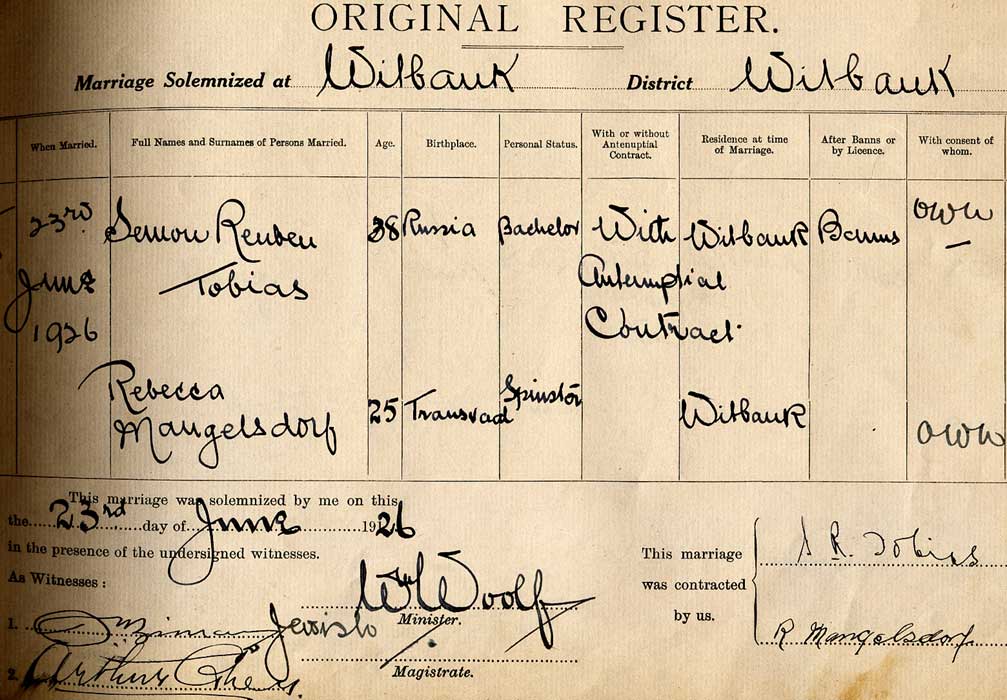 ORIGINAL REGISTER.
Marriage Solemnized at Witbank District Witbank
When Married. Full Names and Surnames of Persons Married. Age. Birthplace. Personal Status. With or without Antenuptial Contract. Residence at time of Marriage. After Banns or by Licence. With consent of whom.
23rd Semon Reuben 38 Russia Bachelor With Witbank Banns own
June Tobias Antenuptial
1926 Contract
Rebecca Spinster
Mangelsdorf 25 Transvaal Witbank own
This marriage was solemnized by me on this
the 23rd day of June 1926
in the presence of the undersigned witnesses.
As Witnesses :
Woolf
1. Jewish Minister.
2. Arthur
Magistrate.
This marriage was contracted by us.
S R. Tobias
R Mangelsdorf